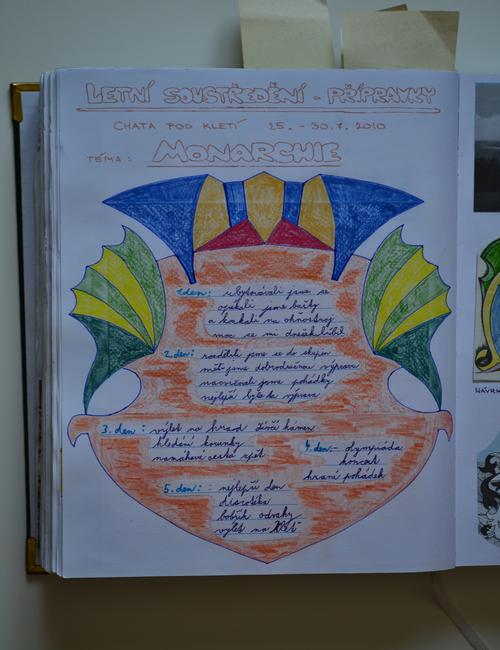 LETNÍ SOUSTŘEDĚNÍ - PŘÍPRAVKY
CHATA POD KLETÍ 25. - 30.7. 2010
TÉMA: MONARCHIE
1.den: ubytovávali jsme se
opékali jsme buřty
a koukali na ohňostroj
moc se mi dnešek líbil
2.den: rozdělili jsme se do skupin
měli jsme dobrodružnou výpravu
nacvičovali jsme pohádky
nejlepší byla ta výprava
3. den: výlet na hrad Dívčí kámen
hledání korunky
namáhavá cesta zpět
4.den - olympiáda
koncert
hraní pohádek
5.den: - nejlepší den
discotéka
bobřík odvahy
výlet na Kleť
NÁVRH